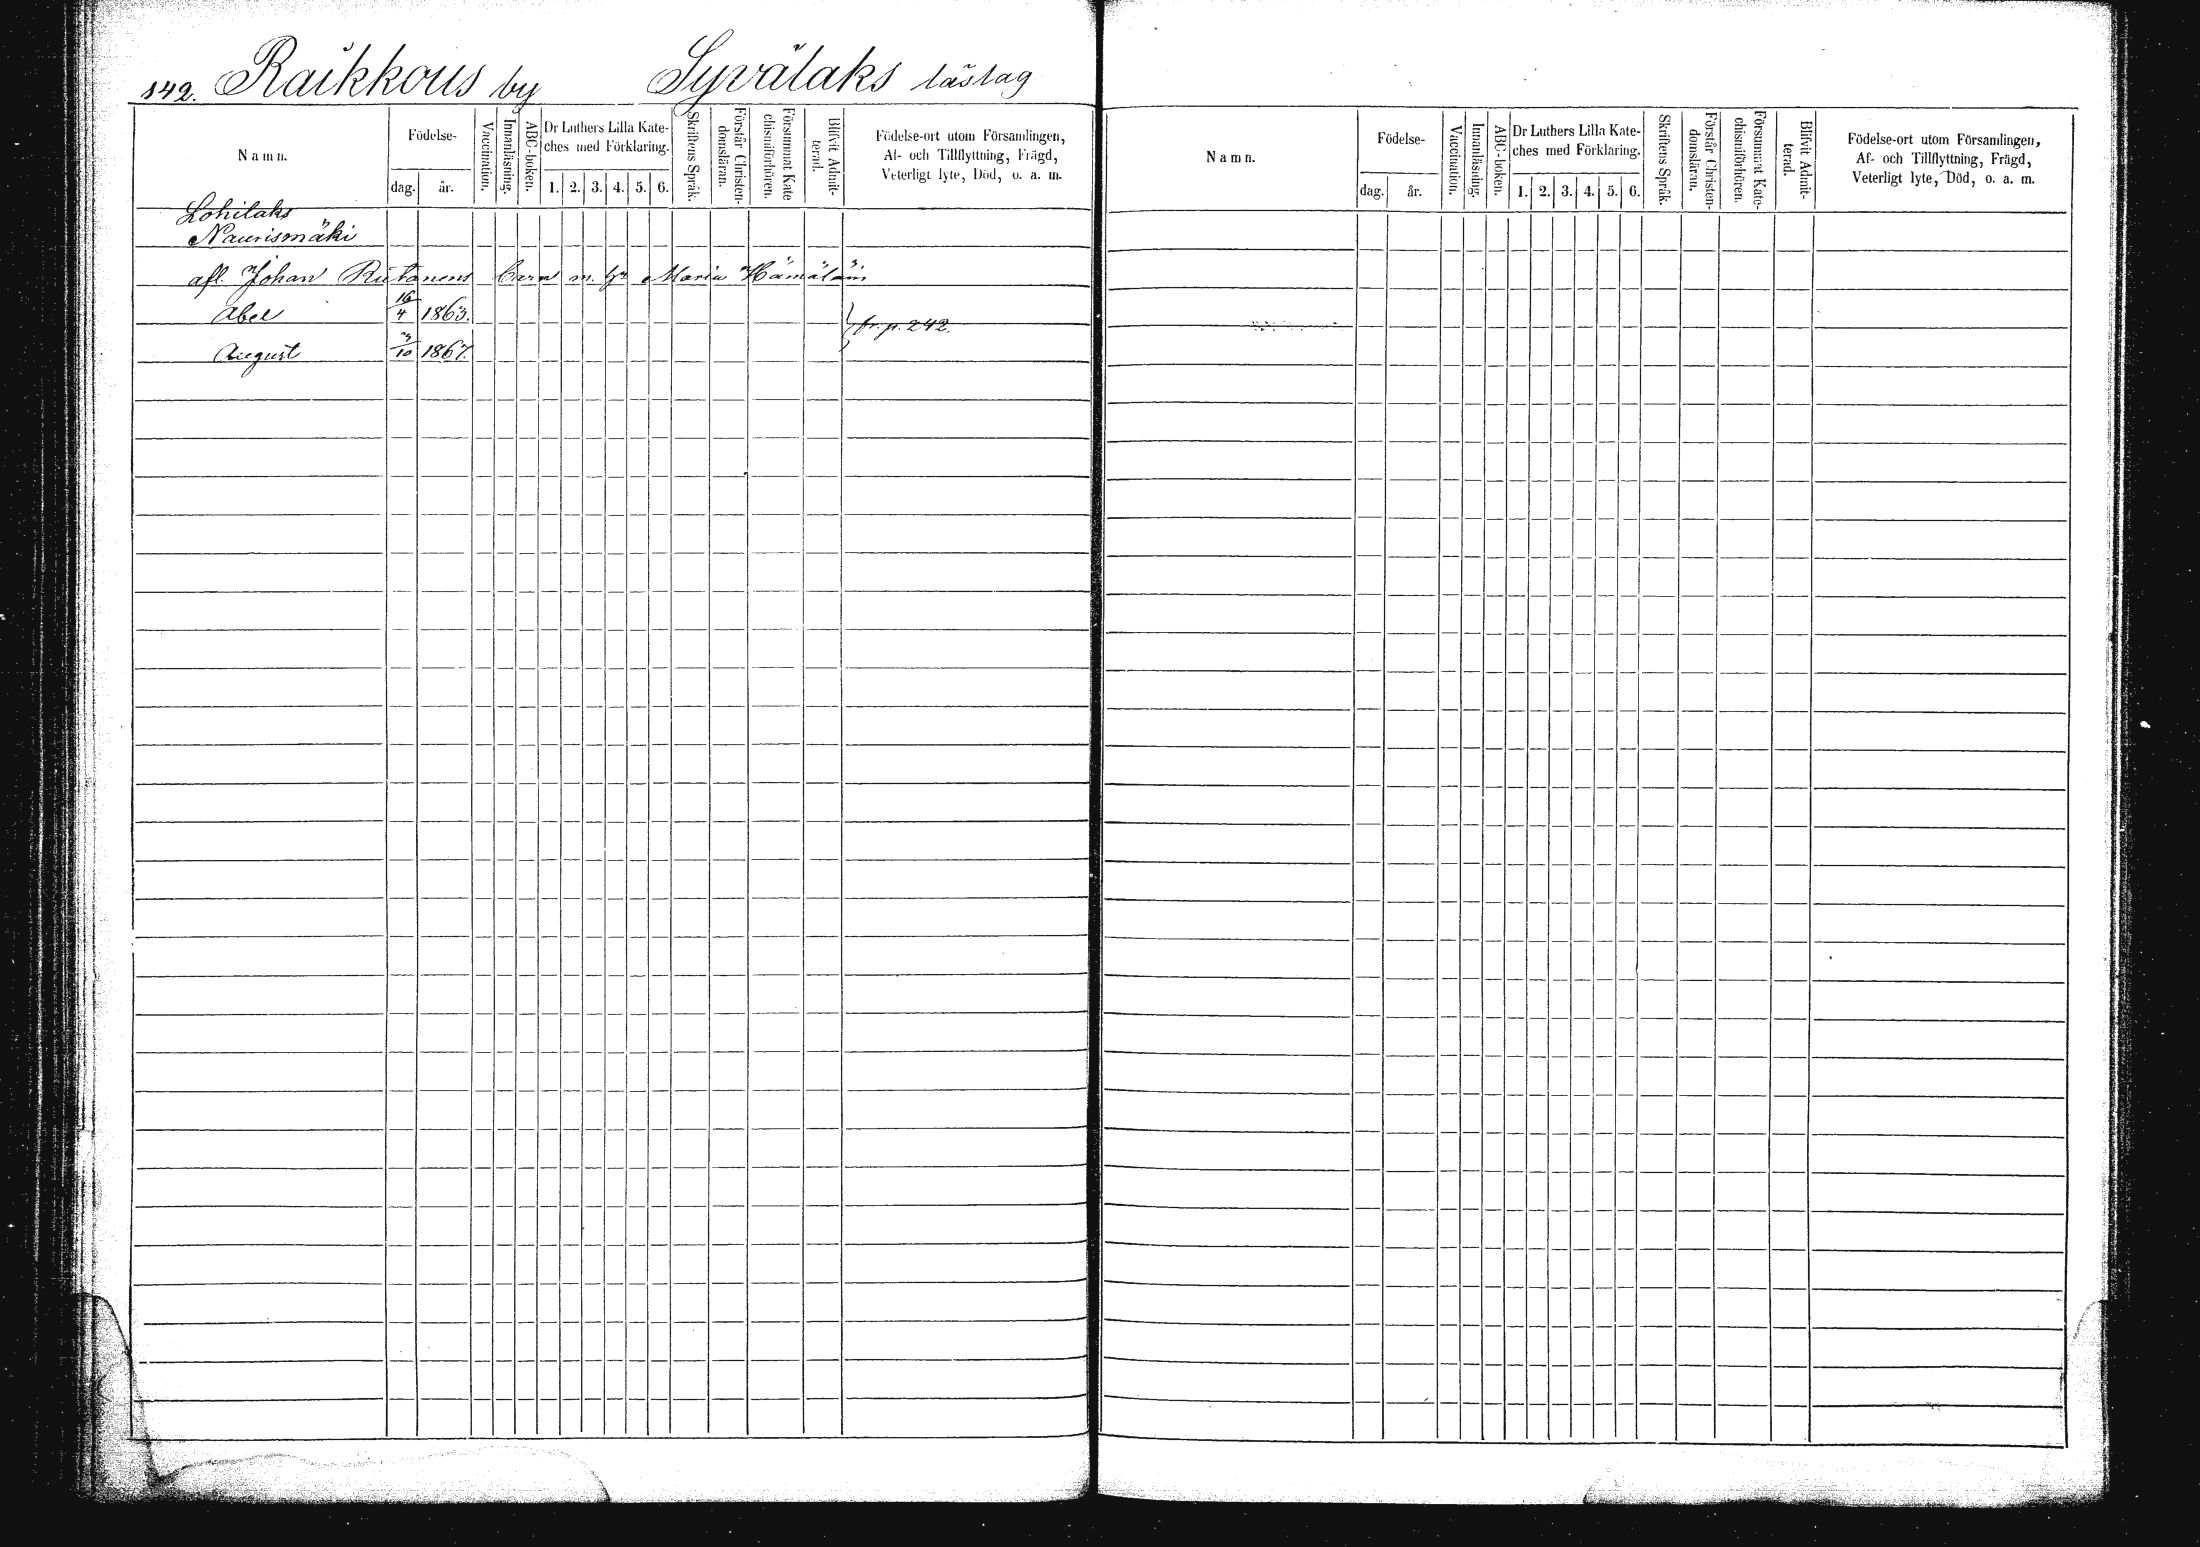 142. Raikkous by Syvälaks läslag
Namn.
Födelse-
dag. år.
Vaccination.
Innanläsning.
ABC-boken.
Dr Luthers Lilla Kate-
ches med Förklaring.
1. 2. 3. 4. 5. 6.
Skriftens Språk.
Förstår Christen-
domsläran.
Försummat Kate
chismiförhören.
Blifvit Admit-
terad.
Födelse-ort utom Församlingen,
Af- och Tillflyttning, Frägd,
Veterligt lyte, Död, o. a. m.
Lohilaks
Naurismäki
afl. Johan Rutanens barn m. h. Maria Hämäläin
Abel 16/4 1863.
fr. p. 242.
August /10 1867.
Namn.
Födelse-
dag. år.
Vaccination.
Innanläsning.
ABC-boken.
Dr Luthers Lilla Kate-
ches med Förklaring.
1. 2. 3. 4. 5. 6.
Skriftens Språk.
Förstår Christen-
domsläran.
Försummat Kate-
chismiförhören.
Blifvit Admit-
terad.
Födelse-ort utom Församlingen,
Af- och Tillflyttning, Frägd,
Veterligt lyte, Död, o. a. m.